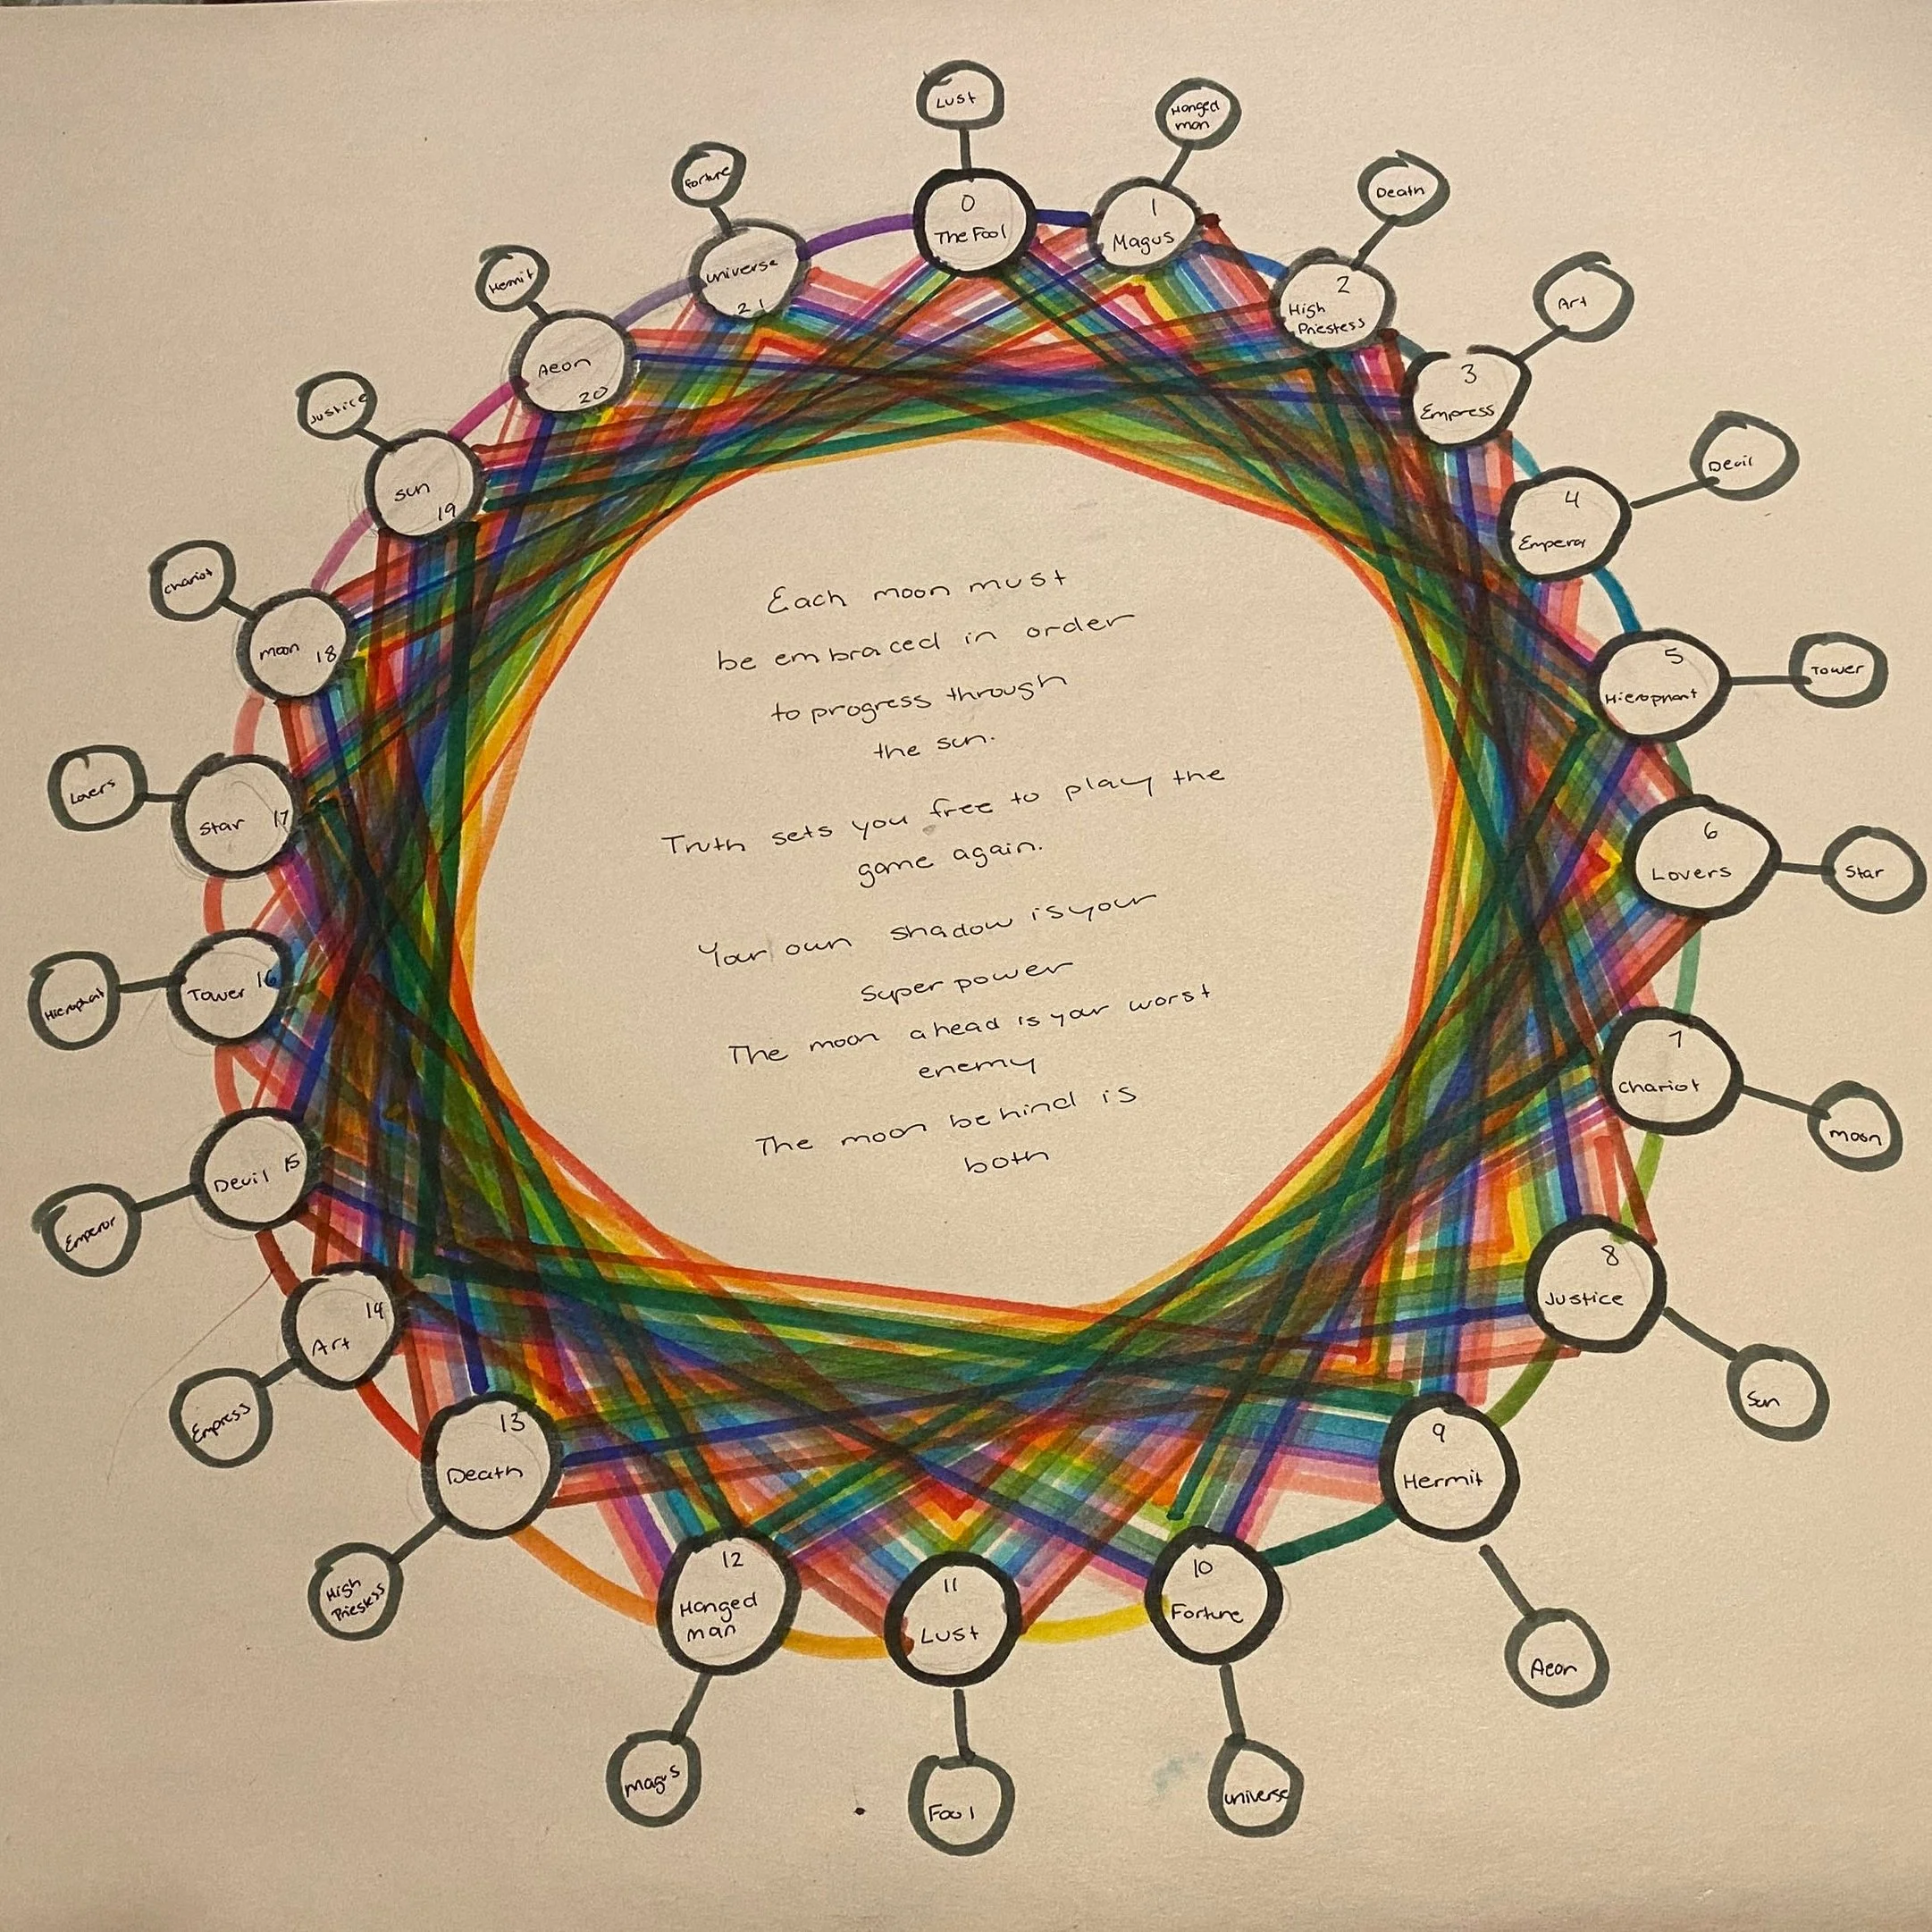 Lust
0
The Fool
Hanged
man
1
Magus
Death
2
High
Priestess
Art
3
Empress
Devil
4
Emperor
Tower
5
Hierophant
Star
6
Lovers
moon
7
Chariot
Sun
8
Justice
Aeon
9
Hermit
universe
10
Fortune
Fool
11
Lust
magus
12
Hanged
man
High
Priestess
13
Death
Empress
14
Art
Emperor
15
Devil
Hierophant
16
Tower
Lovers
17
Star
Chariot
18
moon
Justice
19
sun
Hermit
20
Aeon
Fortune
21
universe
Each moon must
be embraced in order
to progress through
the sun.
Truth sets you free to play the
game again.
Your own shadow is your
Super power
The moon ahead is your worst
enemy
The moon behind is
both